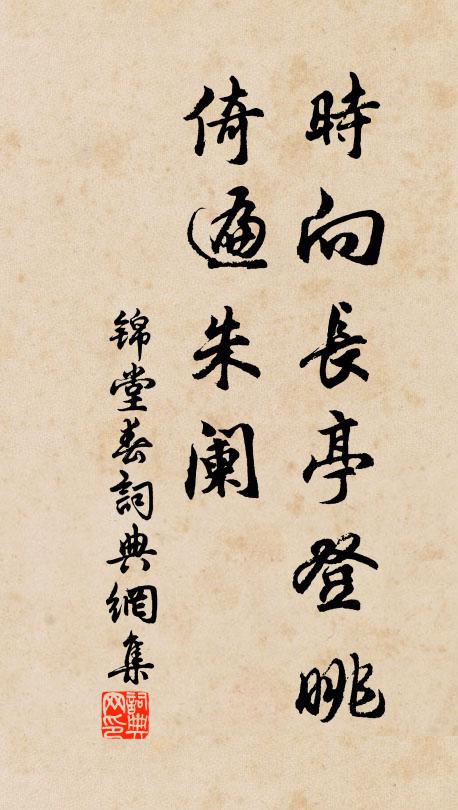 時向長亭登眺
倚遍朱阑
锦堂春詞典網集
詞典网印